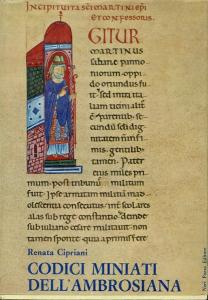 Incipit vita scī martini epī
et confessoris.
IGITUR
MARTINUS
sabariæ panno
niorum oppi
do oriundus
fuit. sed intra ita
liam ticini altus
ē. parentib; se
cundū secul
dignitatē
infimis. gentilib;
tamen. Pater
eius miles pri
mum. post tribunus militum
fuit. Ipse armatā militiā in ad
olescentia secutus. int scolares
alas sub rege constantio. deinde
sub iuliano cesare militauit. non
tamen sponte. quia a primis ferē
Renata Cipriani
CODICI MINIATI
DELL'AMBROSIANA
Neri Pozza Editore